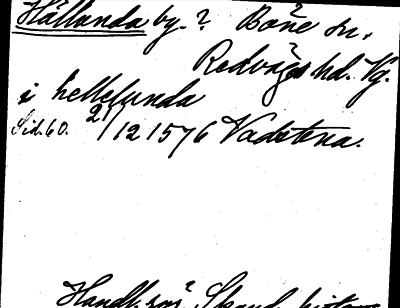 Hällunda by.? Böne sn.
Redvägs hd. Vg.
i hellelunda
Sid. 60. 21/12 1576 Vadstena.
Handl. rör. Skand. histor